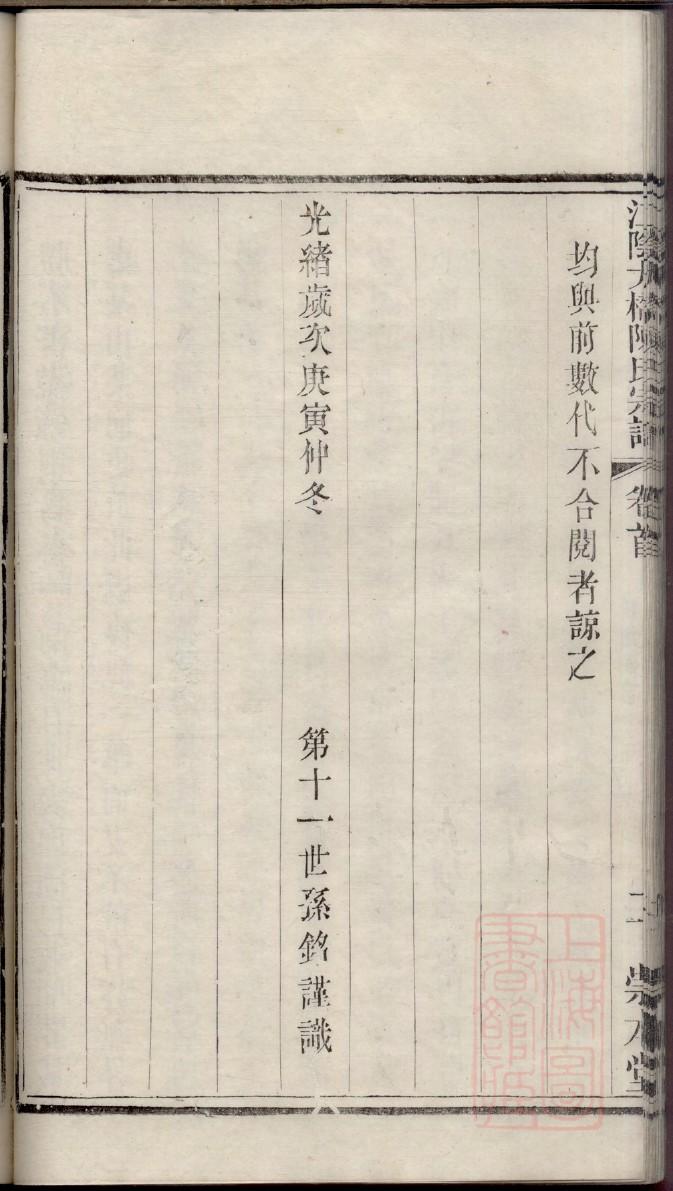 江陰九橋陳氏宗譜 卷首 二 崇本堂
均與前數代不合閱者諒之
光緒歲次庚寅仲冬 第十一世孫銘謹識
上海圖書館藏